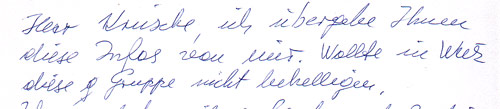 Herr Krusche, ich übergebe Ihnen
diese Infos von mir. Wollte in
diese g Gruppe nicht behelligen.